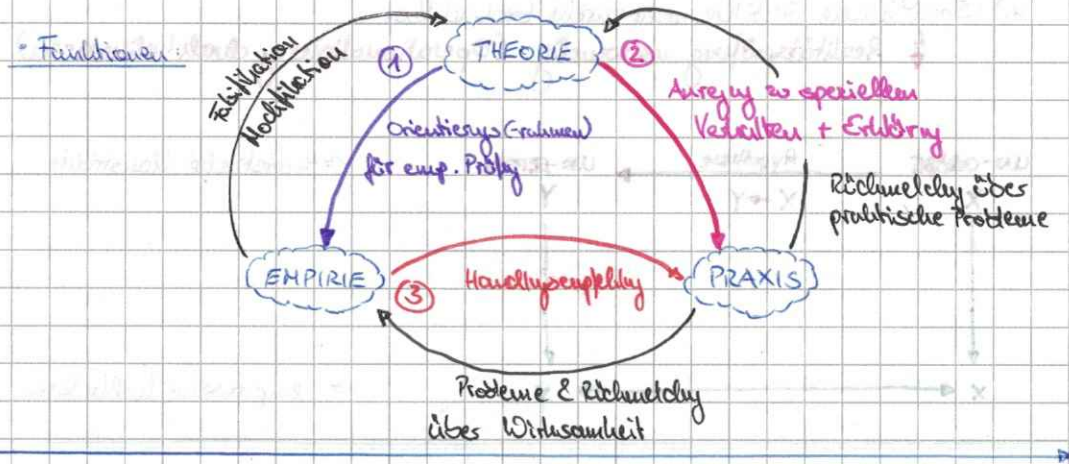 • Funktionen:
Falsifikation
Modifikation
THEORIE
①
②
Orientierungs(-rahmen)
für emp. Prüfung
Anregung zu speziellem
Verhalten + Erklärung
Rückmeldung über
praktische Probleme
EMPIRIE
③
Handlungsempfehlung
PRAXIS
Probleme & Rückmeldung
über Wirksamkeit